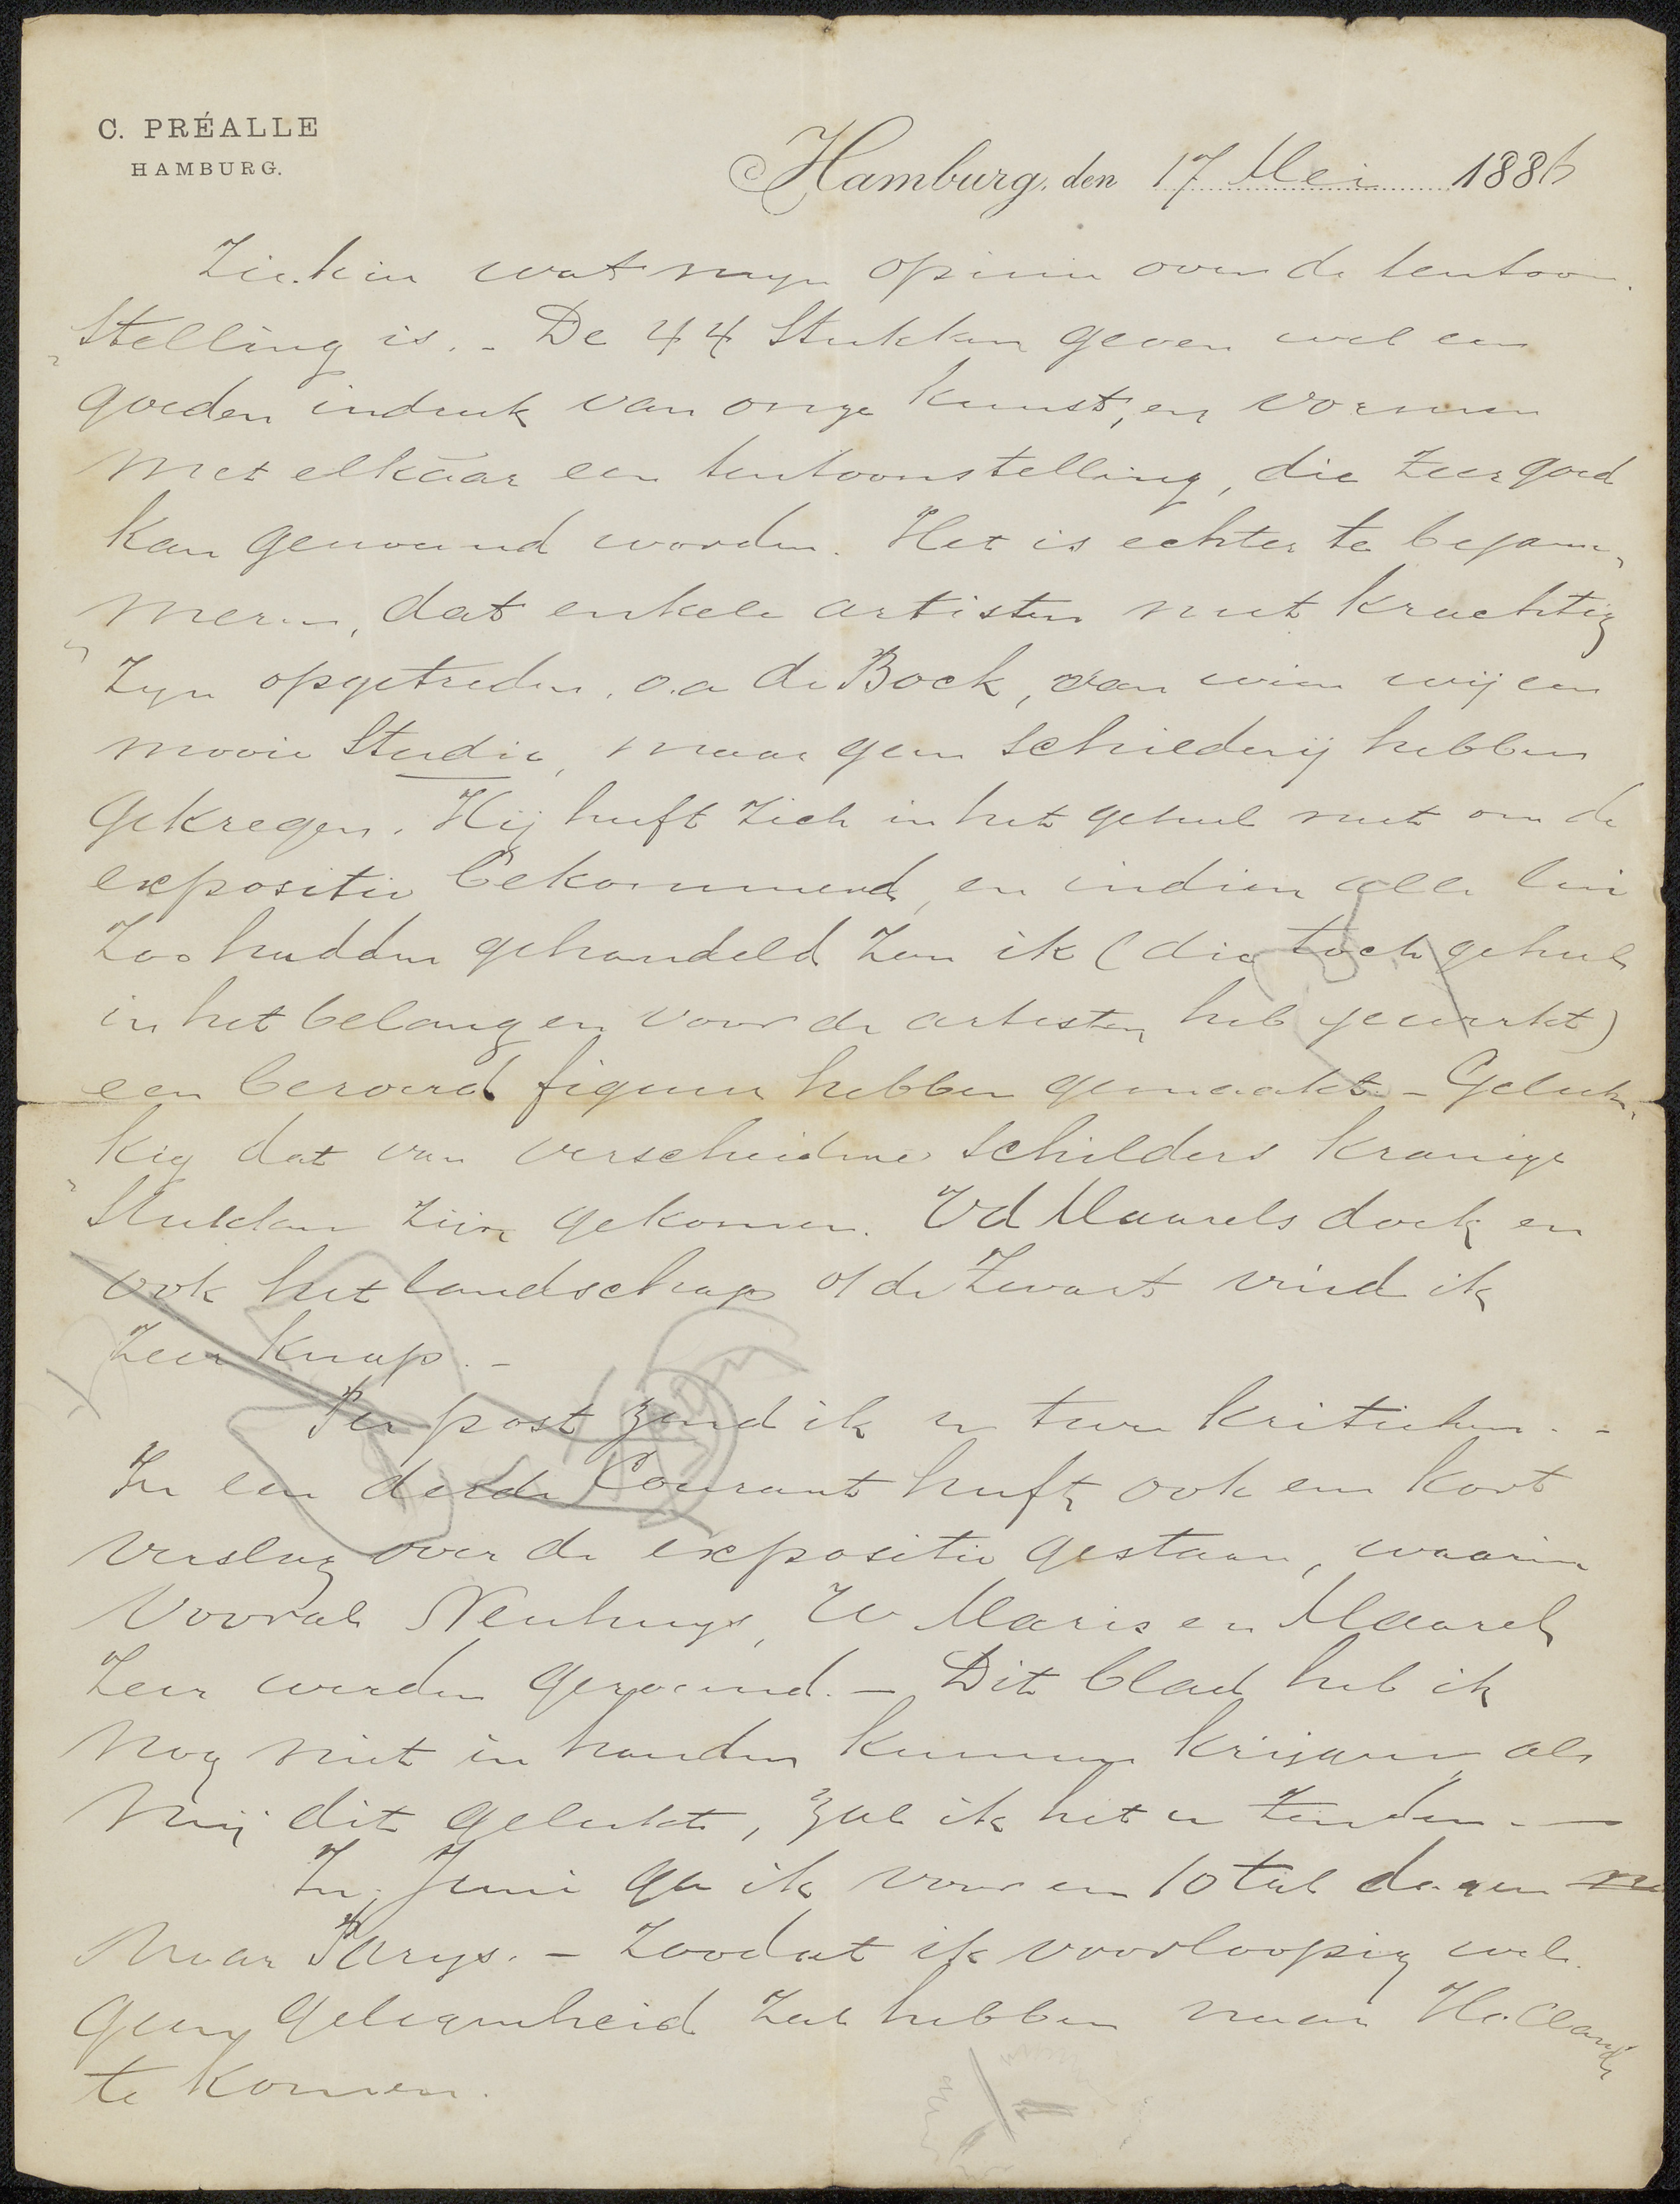 C. PRÉALLE
HAMBURG.
Hamburg, den 17 Mei 1886
Zie hier wat mijn opinie over de tentoon
stelling is. - De 44 Stukken geven wel een
goeden indruk van onze kunst, en vormen
met elkaar een tentoonstelling, die zeer goed
kan genoemd worden. Het is echter te bejam-
meren, dat enkele artisten niet krachtig
zijn opgetreden, o.a de Bock, van wien wij een
mooie Studie, maar geen schilderij hebben
gekregen. Hij heeft zich in het geheel niet om de
expositie bekommerd, en indien alle lui
zoo hadden gehandeld zou ik (die toch geheel
in het belang en voor de artisten heb gewerkt)
een beroerd figuur hebben gemaakt - Geluk-
kig dat van verscheidene schilders kranige
Stukken zijn gekomen. Vd Maarels doek en
ook het landschap v/d Zwart vind ik
zeer knap. -
Per post zend ik u twee kritieken. -
In een derde Courant heeft ook een kort
verslag over de expositie gestaan, waarin
vooral Neuhuys, W Maris en Maarel
zeer werden geroemd. - Dit blad heb ik
nog niet in handen kunnen krijgen, als
mij dit gelukt, zal ik het u zenden. -
In Juni ga ik voor een 10 tal dagen
naar Parijs. - Zoodat ik voorloopig wel
geen gelegenheid zal hebben naar Holland
te komen.